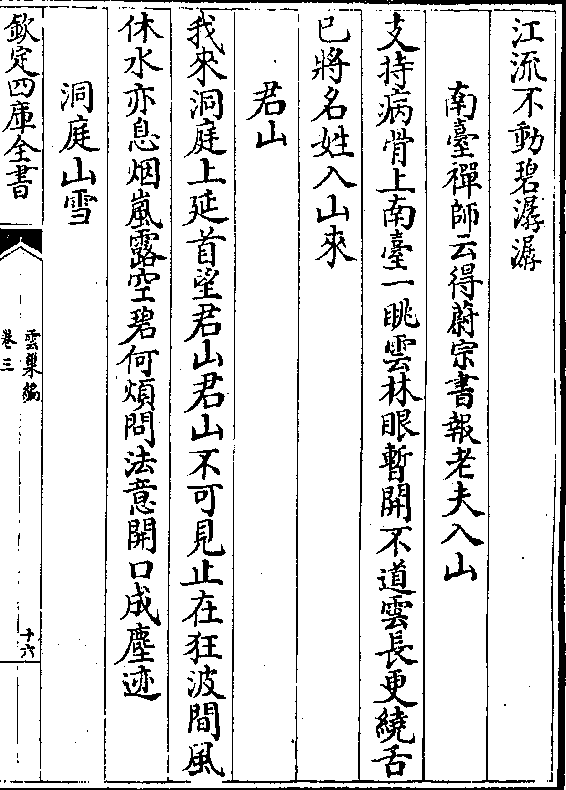 江流不動碧潺潺
南臺禪師云得蔚宗書報老夫入山
支持病骨上南臺一眺雲林眼暫開不道雲長更繞舌
已將名姓入山來
君山
我來洞庭上延首望君山君山不可見止在狂波間風
休水亦息烟嵐露空碧何煩問法意開口成塵迹
洞庭山雪
欽定四庫全書
雲巢編
卷三
十六